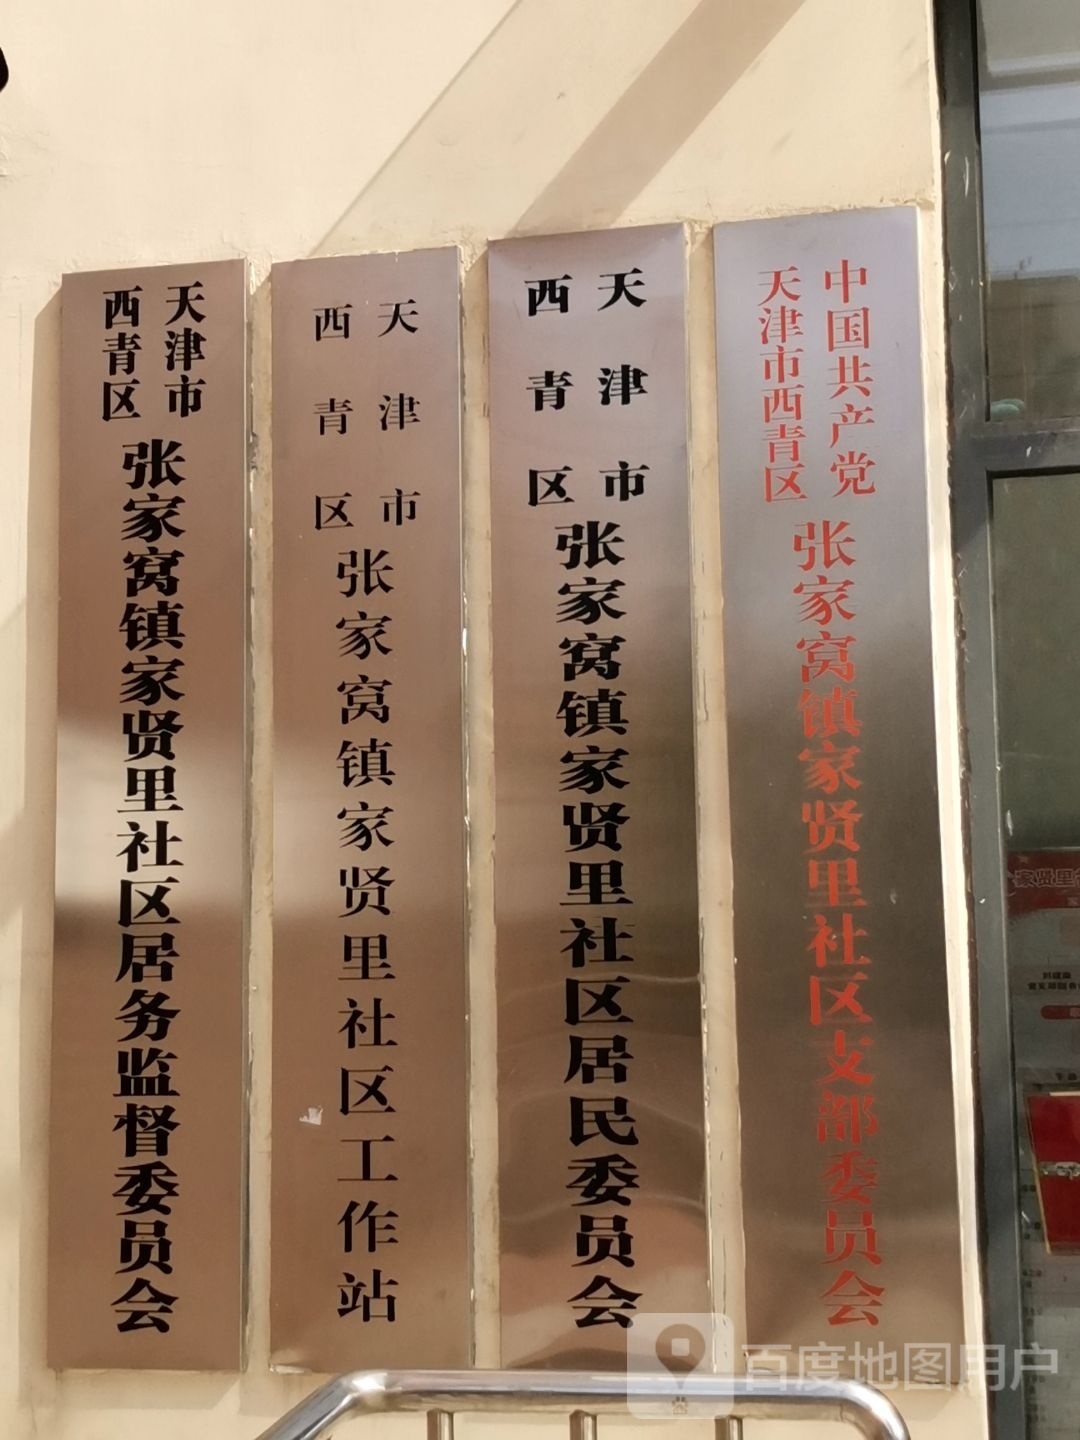 中国共产党
天津市西青区
张家窝镇家贤里社区支部委员会
天津市
西青区
张家窝镇家贤里社区居民委员会
天津市
西青区
张家窝镇家贤里社区工作站
天津市
西青区
张家窝镇家贤里社区居务监督委员会
家贤里
百度地图用户